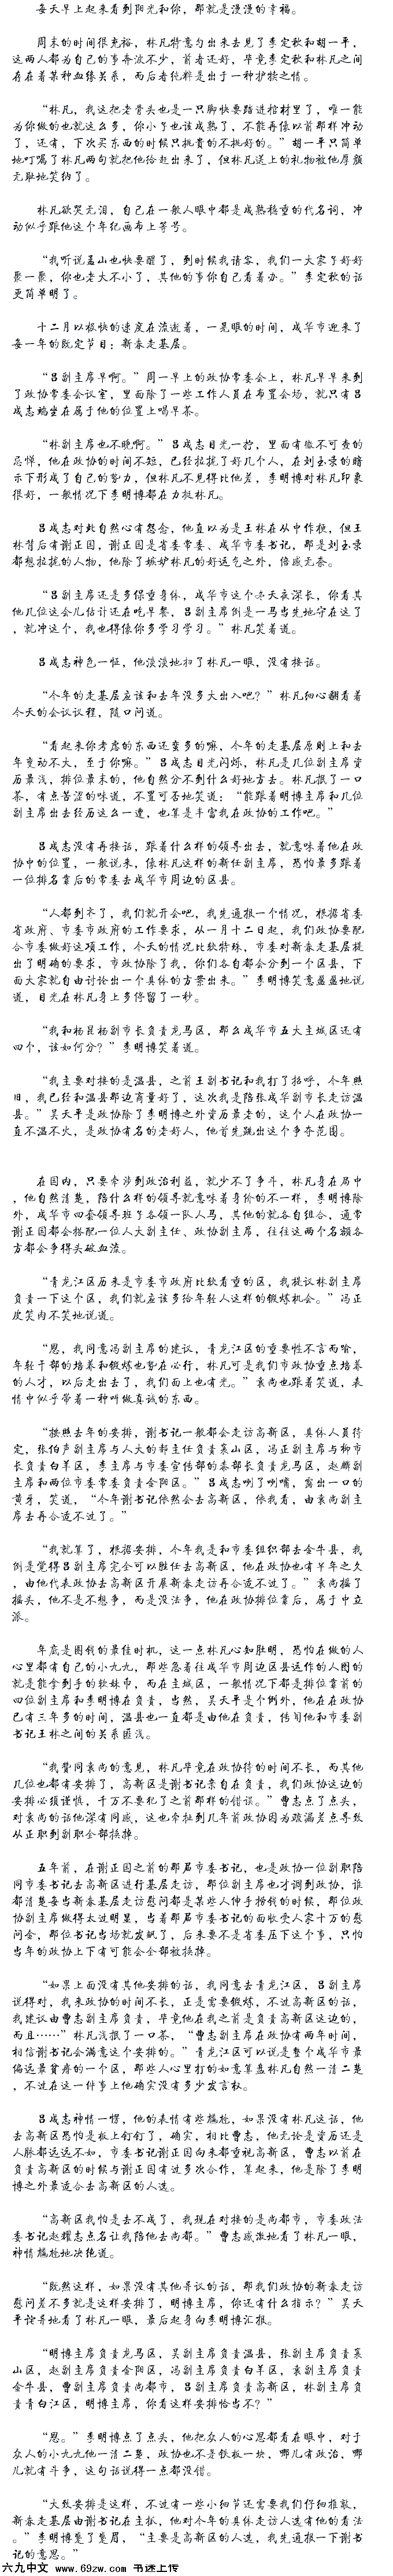 每天早上起来看到阳光和你，那就是漫漫的幸福。
周末的时间很充裕，林凡特意匀出来去见了李定秋和胡一平，
这两人都为自己的事奔波不少，前者还好，毕竟李定秋和林凡之间
存在着某种血缘关系，而后者纯粹是出于一种护犊之情。
“林凡，我这把老骨头也是一只脚快要踏进棺材里了，唯一能
为你做的也就这么多，你小子也该成熟了，不能再像以前那样冲动
了，还有，下次买东西的时候只挑贵的不挑好的。”胡一平只简单
地叮嘱了林凡两句就把他给赶出来了，但林凡送上的礼物被他厚颜
无耻地笑纳了。
林凡欲哭无泪，自己在一般人眼中都是成熟稳重的代名词，冲
动似乎跟他这个年纪画布上等号。
“我听说孟山也快要醒了，到时候我请客，我们一大家子好好
聚一聚，你也老大不小了，其他的事你自己看着办。”李定秋的话
更简单明了。
十二月以极快的速度在流逝着，一晃眼的时间，成华市迎来了
每一年的既定节目：新春走基层。
“吕副主席早啊。”周一早上的政协常委会上，林凡早早来到
了政协常委会议室，里面除了一些工作人员在布置会场，就只有吕
成志端坐在属于他的位置上喝早茶。
“林副主席也不晚啊。”吕成志目光一拧，里面有微不可查的
忌惮，他在政协的时间不短，已经拉拢了好几个人，在刘玉录的暗
示下形成了自己的势力，但林凡不见得比他差，李明博对林凡印象
很好，一般情况下李明博都在力挺林凡。
吕成志对此自然心有怨念，他直以为是王林在从中作祟，但王
林背后有谢正国，谢正国是省委常委、成华市委书记，那是刘玉录
都想拉拢的人物，他除了嫉妒林凡的好运气之外，倍感无奈。
“吕副主席还是多保重身体，成华市这个冬天哀深长，你看其
他几位这会儿估计还在吃早餐，吕副主席倒是一马当先地守在这了
，就冲这个，我也得像你多学习学习。”林凡笑着道。
吕成志神色一怔，他淡淡地扫了林凡一眼，没有接话。
“今年的走基层应该和去年没多大出入吧？”林凡细心翻看着
今天的会议议程，随口问道。
“看起来你考虑的东西还蛮多的嘛，今年的走基层原则上和去
年变动不大，至于你嘛。”吕成志目光闪烁，林凡是几位副主席资
历最浅，排位最末的，他自然分不到什么好地方去。林凡抿了一口
茶，有点苦涩的味道，不置可否地笑道：“能跟着明博主席和几位
副主席出去经历这么一遭，也算是丰富我在政协的工作吧。”
吕成志没有再接话，跟着什么样的领导出去，就意味着他在政
协中的位置，一般说来，像林凡这样的新任副主席，恐怕最多跟着
一位排名靠后的常委去成华市周边的区县。
“人都到齐了，我们就开会吧，我先通报一个情况，根据省委
省政府、市委市政府的工作要求，从一月十二日起，我们政协要配
合市委做好这项工作，今天的情况比较特殊，市委对新春走基层提
出了明确的要求，市政协除了我，你们各自都会分到一个区县，下
面大家就自由讨论出一个具体的方案出来。”李明博笑意盈盈地说
道，目光在林凡身上多停留了一秒。
“我和杨昆杨副市长负责龙马区，那么成华市五大主城区还有
四个，该如何分？”李明博笑着道。
“我主要对接的是温县，之前王副书记和我打了招呼，今年照
旧，我已经和温县那边商量好了，这次我是陪张成华副市长走访温
县。”吴天平是政协除了李明博之外资历最老的，这个人在政协一
直不温不火，是政协有名的老好人，他首先跳出这个争夺范围。
在国内，只要牵涉到政治利益，就少不了争斗，林凡身在局中
，他自然清楚，陪什么样的领导就意味着身价的不一样，李明博除
外，成华市四套领导班子各领一队人马，其他的就各自组合，通常
谢正国都会搭配一位人大副主任、政协副主席，往往这两个名额各
方都会争得头破血流。
“青龙江区历来是市委市政府比较看重的区，我提议林副主席
负责一下这个区，我们就应该多给年轻人这样的锻炼机会。”冯正
皮笑肉不笑地说道。
“恩，我同意冯副主席的建议，青龙江区的重要性不言而喻，
年轻干部的培养和锻炼也势在必行，林凡可是我们市政协重点培养
的人才，以后走出去了，我们面上也有光。”袁尚也跟着笑道，表
情中似乎带着一种叫做真诚的东西。
“按照去年的安排，谢书记一般都会走访高新区，具体人员待
定，张伯声副主席与人大的郝主任负责莱山区，冯正副主席与柳市
长负责白羊区，李主席与市委宣传部的秦部长负责龙马区，赵麟副
主席和两位市委常委负责金阳区。”吕成志咧了咧嘴，露出一口的
黄牙，笑道，“今年谢书记依然会去高新区，依我看，由袁尚副主
席去再合适不过了。”
“我就算了，根据安排，今年我是和市委组织部去金牛县，我
倒是觉得吕副主席完全可以胜任去高新区，他在政协也有半年之久
，由他代表政协去高新区开展新春走访再合适不过了。”袁尚摇了
摇头，他不是不想争，而是没法争，他在政协排位靠后，属于中立
派。
年底是圈钱的最佳时机，这一点林凡心知肚明，恐怕在做的人
心里都有自己的小九九，那些忍着往成华市周边区县这作的人图的
就是能拿到手的软妹币，而在主城区，一般情况下都是排位靠前的
四位副主席和李明博在负责，当然，吴天平是个例外，他在在政协
已有三年多的时间，温县也一直都是由他在负责，传闻他和市委副
书记王林之间的关系匪浅。
“我赞同袁尚的意见，林凡毕竟在政协待的时间不长，而其他
几位也都有安排了，高新区是谢书记亲自在负责，我们政协这边的
安排必须谨慎，千万不要犯了之前那样的错误。”曹志点了点头，
对袁尚的话他深有同感，这也牵扯到几年前政协因为疏漏差点导致
从正职到副职全部换掉。
五年前，在谢正国之前的那届市委书记，也是政协一位副职陪
同市委书记去高新区进行基层走访，那位副主席也才调到政协，谁
都清楚每当新春基层走访慰问都是某些人伸手捞钱的时候，那位政
协副主席做得太过明显，当着那届市委书记的面收受人家十万的慰
问金，那位书记当场就发飙了，后来要不是省委压下这个事，只怕
当年的政协上下有可能会全部被换掉。
“如果上面没有其他安排的话，我同意去青龙江区，吕副主席
说得对，我来政协的时间不长，正是需要锻炼，不过高新区的话，
我建议由曹志副主席负责，毕竟他在我之前是负责高新区这边的，
而且……”林凡浅抿了一口茶，“曹志副主席在政协有两年时间，
相信谢书记会满意这个安排的。”青龙江区可以说是整个成华市最
偏远最贫瘠的一个区，那些人心里打的如意算盘林凡自然一清二楚
，不过在这一件事上他确实没有多少发言权。
吕成志神情一愣，他的表情有些尴尬，如果没有林凡这话，他
去高新区恐怕是板上钉钉了，确实，相比曹志，他无论是资历还是
人脉都远远不如，市委书记谢正国向来都重视高新区，曹志以前在
负责高新区的时候与谢正国有过多次合作，算起来，他是除了李明
博之外最适合去高新区的人选。
“高新区我怕是去不成了，我现在对接的是尚都市，市委政法
委书记赵耀志点名让我陪他去尚都。”曹志感激地看了林凡一眼，
神情尴尬地决绝道。
“既然这样，如果没有其他异议的话，那我们政协的新春走访
慰问差不多就是这样安排了，明博主席，你还有什么指示？”吴天
平诧异地看了林凡一眼，最后起身向李明博汇报。
“明博主席负责龙马区，吴副主席负责温县，张副主席负责莱
山区，赵副主席负责金阳区，冯副主席负责白羊区，袁副主席负责
金牛县，曹副主席负责尚都市，吕副主席负责高新区，林副主席负
责青白江区，明博主席，你看这样安排恰当不？”
“恩。”李明博点了点头，他把众人的心思都看在眼中，对于
众人的小九九他一清二楚，政协也不是铁板一块，哪儿有政治，哪
儿就有斗争，这句话说得一点都没错。
“大致安排是这样，不过有一些小细节还需要我们仔细推敲，
新春走基层由谢书记在主抓，他对今年的具体走访人选有他的看法
。”李明博蹙了蹙眉，“主要是高新区的人选，我先通报一下谢书
记的意思。”
六九中文 www.69zw.com 书迷上传